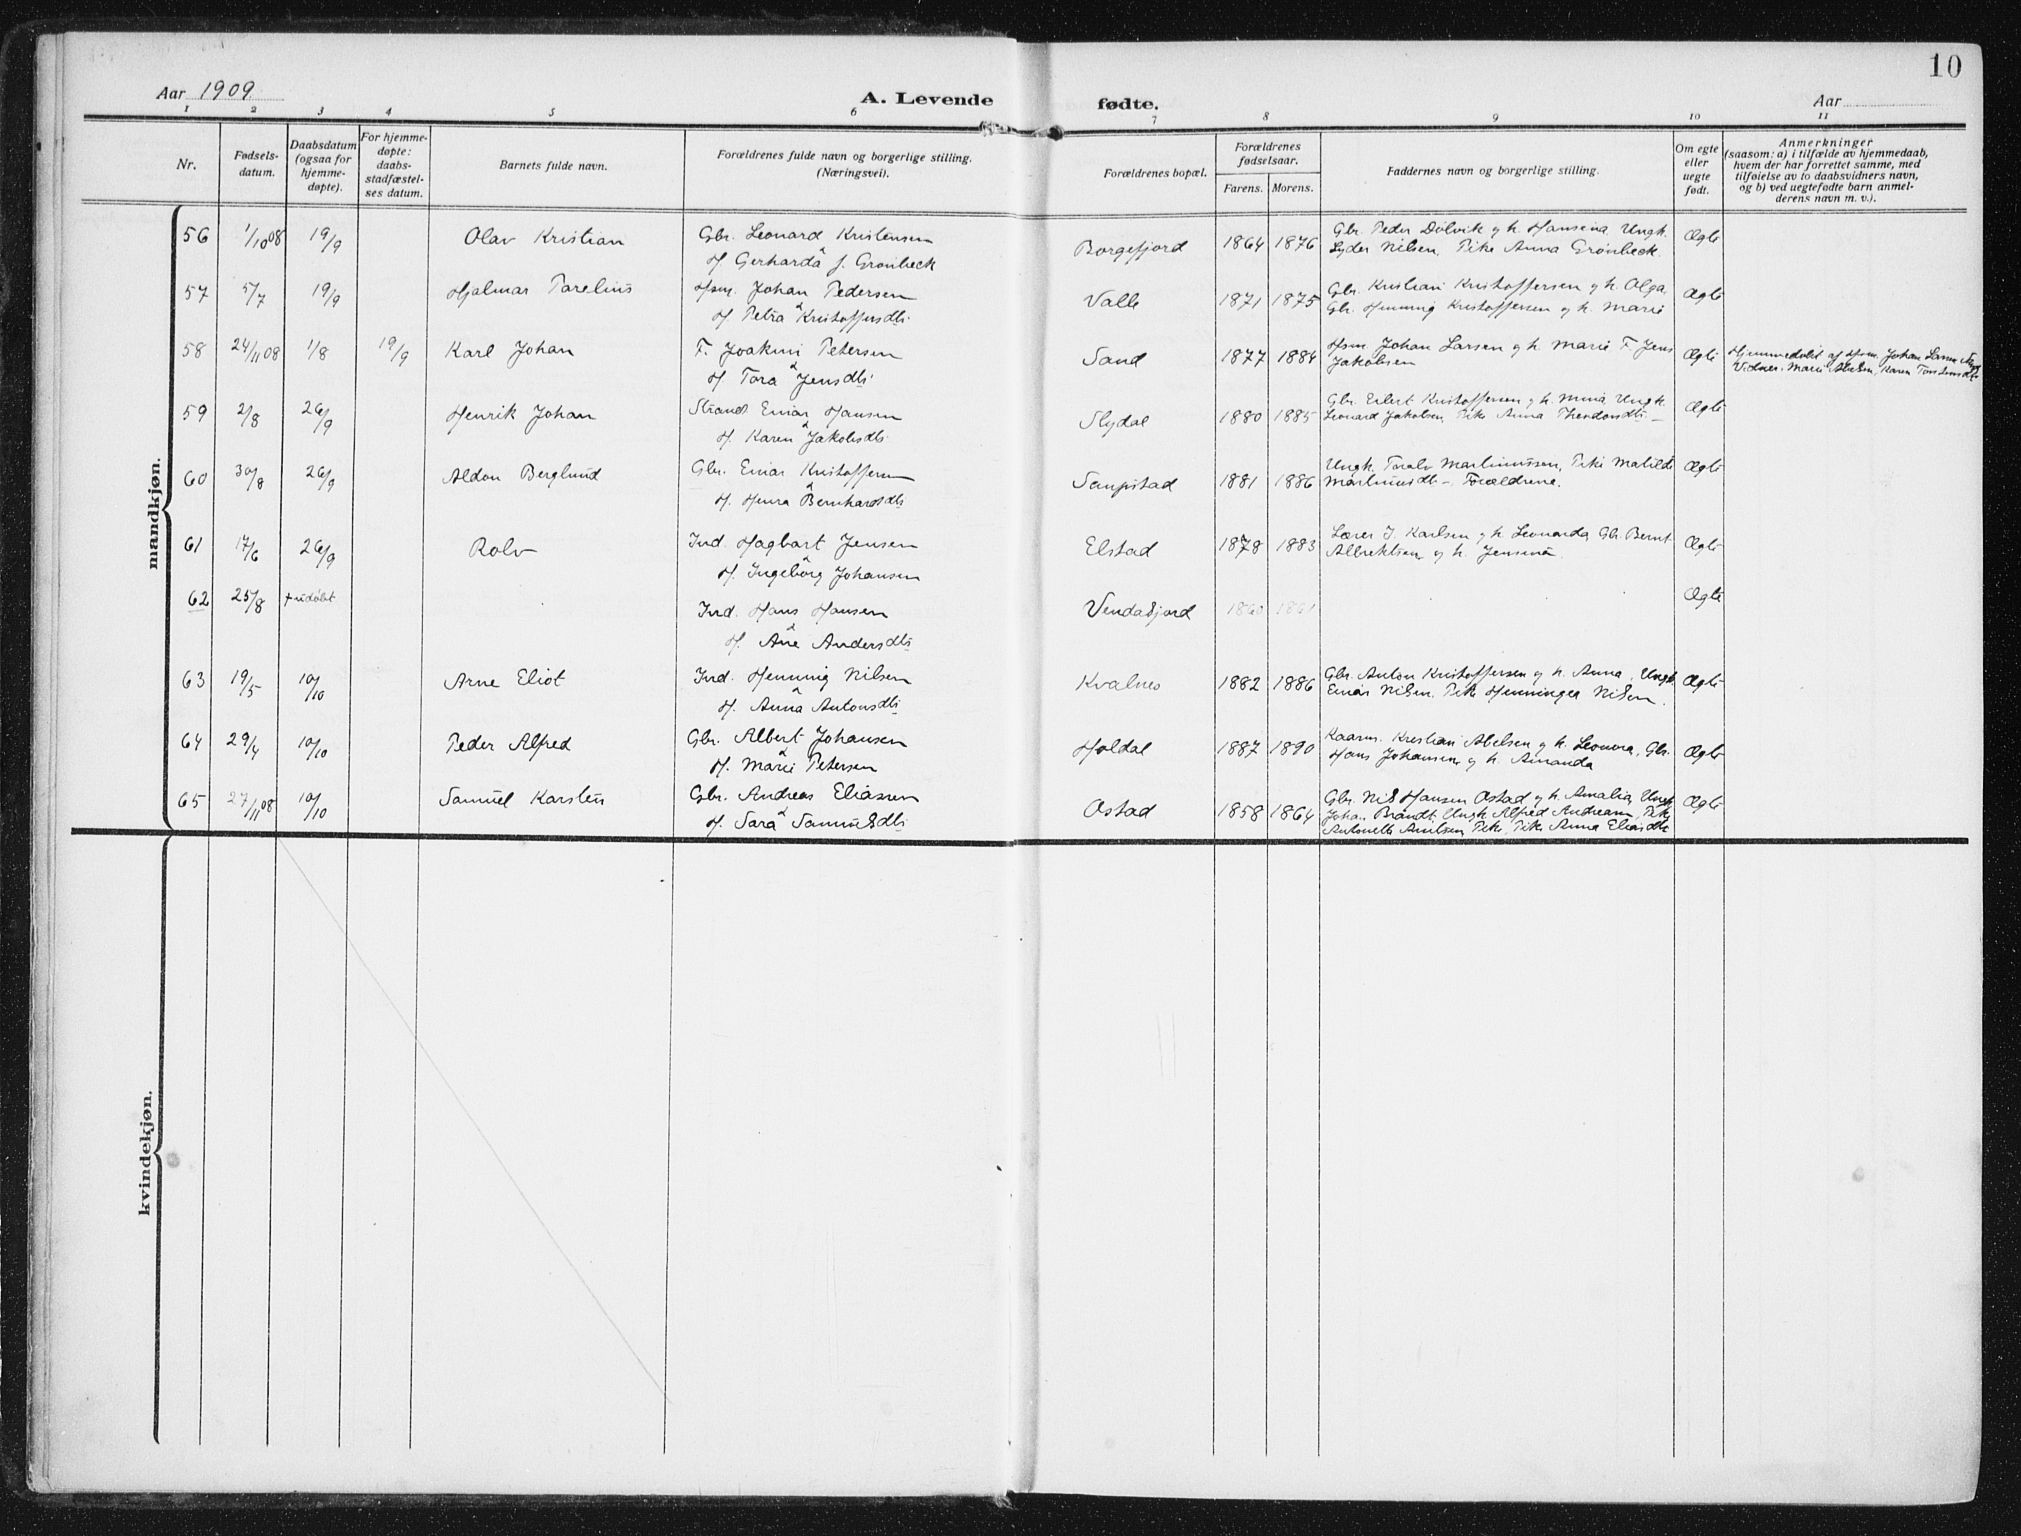 10
Aar 1909
A. Levende fødte.
Aar
1 2 3 4 5 6 7 8 9 10 11
Nr.
Fødsels-
datum.
Daabsdatum
(ogsaa for
hjemme-
døpte).
For hjemme-
døpte:
daabs-
stadfæstel-
ses datum.
Barnets fulde navn.
Forældrenes fulde navn og borgerlige stilling.
(Næringsvei).
Forældrenes bopæl.
Forældrenes
fødselsaar.
Farens. Morens.
Faddernes navn og borgerlige stilling.
Om egte
eller
uegte
født.
Anmerkninger
(saasom: a) i tilfælde av hjemmedaab,
hvem der har forrettet samme, med
tilføielse av to daabsvidners navn,
og b) ved uegtefødte barn anmel-
derens navn m. v.).
mandkjøn.
56 1/10 08 19/9 Olav Kristian Gbr. Leonard Kristensen Borgefjord 1864 1876 Gbr. Peder Dolvik og h. Hansina, Ungk. Ægte
H. Gerharda f. Grønbeck Lyder Nilsen, Pike Anna Grønbeck.
57 5/7 19/9 Hjalmar Parelius Hsm. Johan Pedersen Valle 1871 1875 Gbr. Kristian Kristoffersen og h. Olga, Ægte
H. Petra Kristoffersdtr. Gbr. Henning Kristoffersen og h. Marie
58 24/11 08 1/8 19/9 Karl Johan F. Joakim Petersen Sand 1877 1884 Hsm. Johan Larsen og h. Marie F. Jens Ægte Hjemmedøbt af Hsm. Johan Larsen
H. Tora Jensdtr. Jakobsen Vidner: Marie Abelsen, Karen
59 2/8 26/9 Henrik Johan Strands. Einar Hansen Slydal 1880 1885 Gbr. Eilert Kristoffersen og h. Mina Ungk. Ægte
H. Karen Jakobsdtr. Leonard Jakobsen, Pike Anna Theodorsdtr.
60 30/8 26/9 Aldon Berglund Gbr. Einar Kristoffersen Saupstad 1881 1886 Ungk. Toralv Martinussen, Pike Matilde Ægte
H. Henra Bernhardsdtr. Martinusdtr. Forældrene.
61 17/6 26/9 Rolv Ind. Hagbart Jensen Elstad 1878 1883 Lærer J. Karlsen og h. Leonarda, Gbr. Bernt Ægte
H. Ingeborg Johansen Albrektsen og h. Jensine.
62 25/8 + udøbt Ind. Hans Hansen Vendasjord 1860 1861 Ægte
H. Ane Andersdtr.
63 19/5 10/10 Arne Eliot Ind. Henning Nilsen Kvalnes 1882 1886 Gbr. Anton Kristoffersen og h. Anna, Ungk. Ægte
H. Anna Antonsdtr. Einar Nilsen, Pike Henninga Nilsen.
64 29/4 10/10 Peder Alfred Gbr. Albert Johansen Holdal 1887 1890 Kaarm. Kristian Abelsen og h. Leonora, Gbr. Ægte
H. Marie Petersen Hans Johansen og h. Amanda
65 27/11 08 10/10 Samuel Karsten Gbr. Andreas Eliassen Ostad 1858 1864 Gbr. Nils Hansen Ostad og h. Amalia, Ungk. Ægte
H. Sara Samuelsdtr. Johan Brandt, Ungk. Alfred Andreassen, Pike
Pike Anna Eliasdtr.
kvindekjøn.